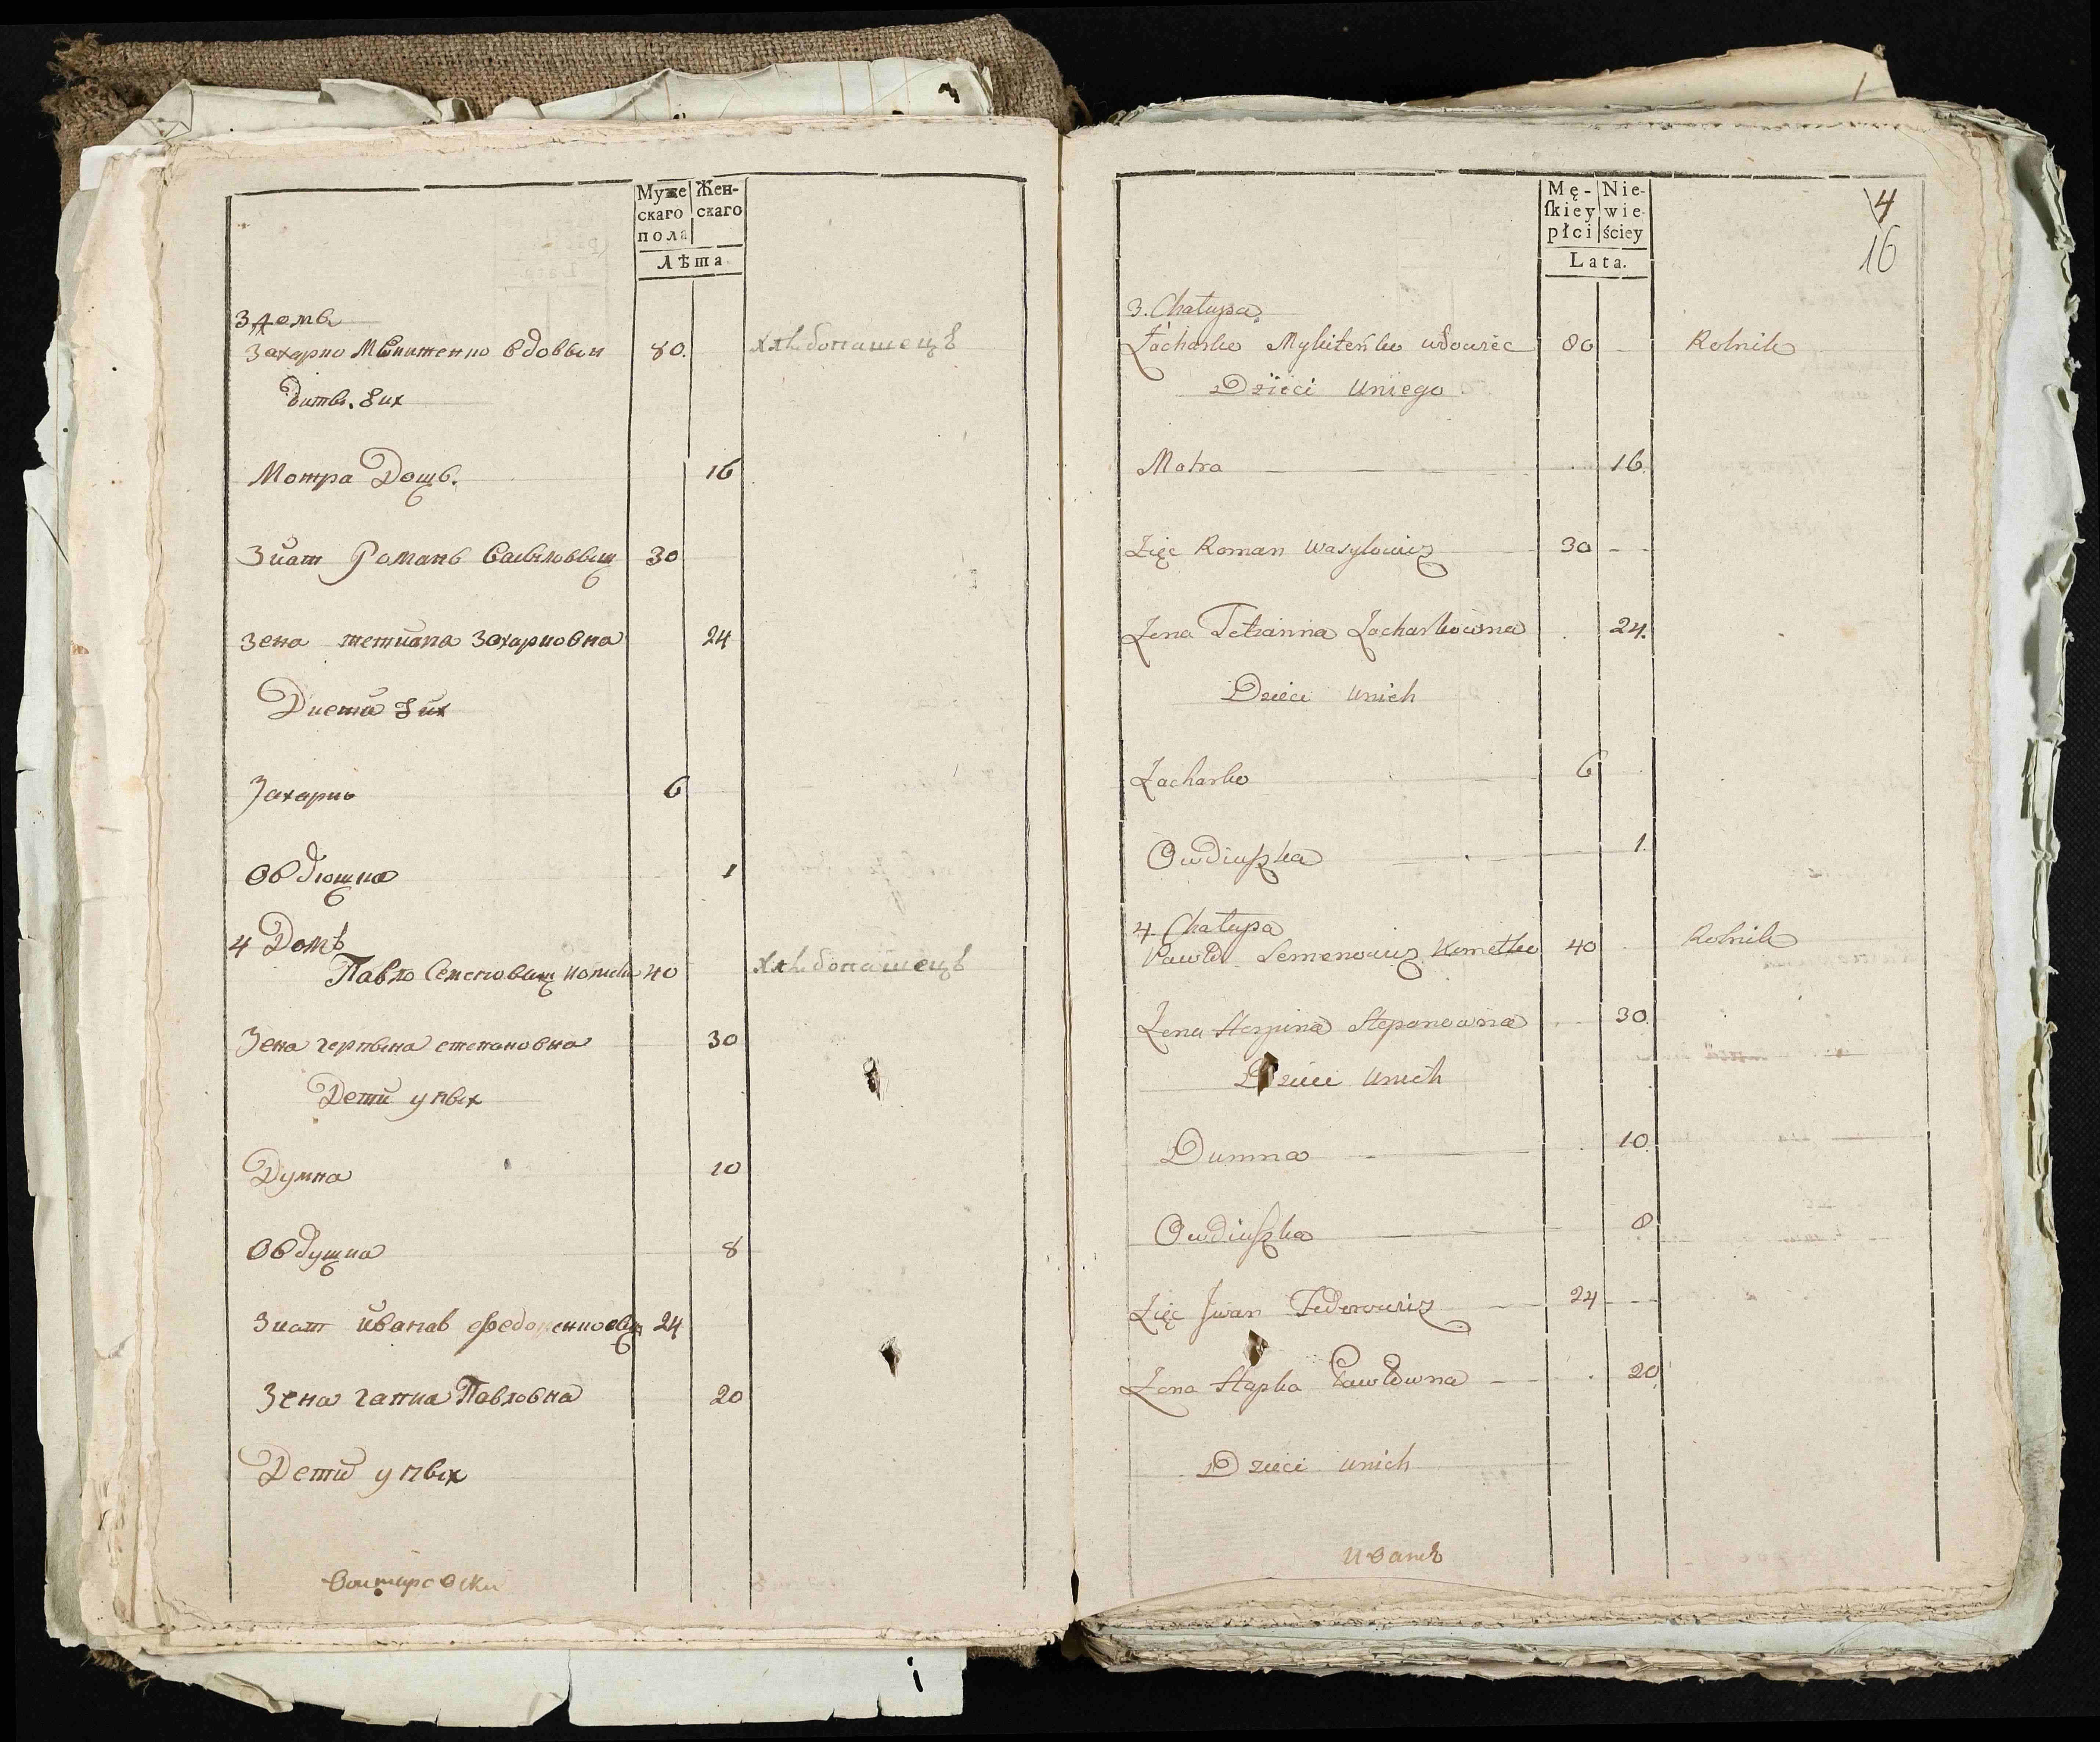 Муже
скаго
пола
Жен-
скаго
Лѣта
3 домъ
Захарко Мыкитенко вдовын 80. хлѣбопашецъ
Дитв. 8 их
Мотра Дощь. 16
Зиат Романъ Васылювыщ 30
Зена тетиана Захарковна 24
Диети 8 их
Захарко 6
Овдюшка 1
4 Домъ
Павло Семеновищ комли 40 хлѣбопашецъ
Зена герпына степановна 30
Дети у ных
Думна 10
Овдушка 8
Зиат иванав 24
Зена гапка Павловна 20
Дети у ных
Mę-
skiey
płci
Nie-
wie-
ściey
Lata.
4
16
3. Chałupa
Zacharko Mykiteńko wdowiec 80 – Rolnik
Dzieci Uniego
Motra 16.
Zięc Roman Wasylowicz 30 - -
Zena Tetianna Zacharkowna 24.
Dzieci Unich
Zacharko 6
Owdiuszka 1.
4. Chałupa
Pawło Semenowicz Komełko 40 Rolnik
Zena Harpina Stepanowna 30.
Dzieci Unich
Dumna 10.
Owdiuszka 8
Zięc Jwan Fedorowicz 24 - -
Zena Hapka Pawłowna 20
Dzieci Unich
Иванъ